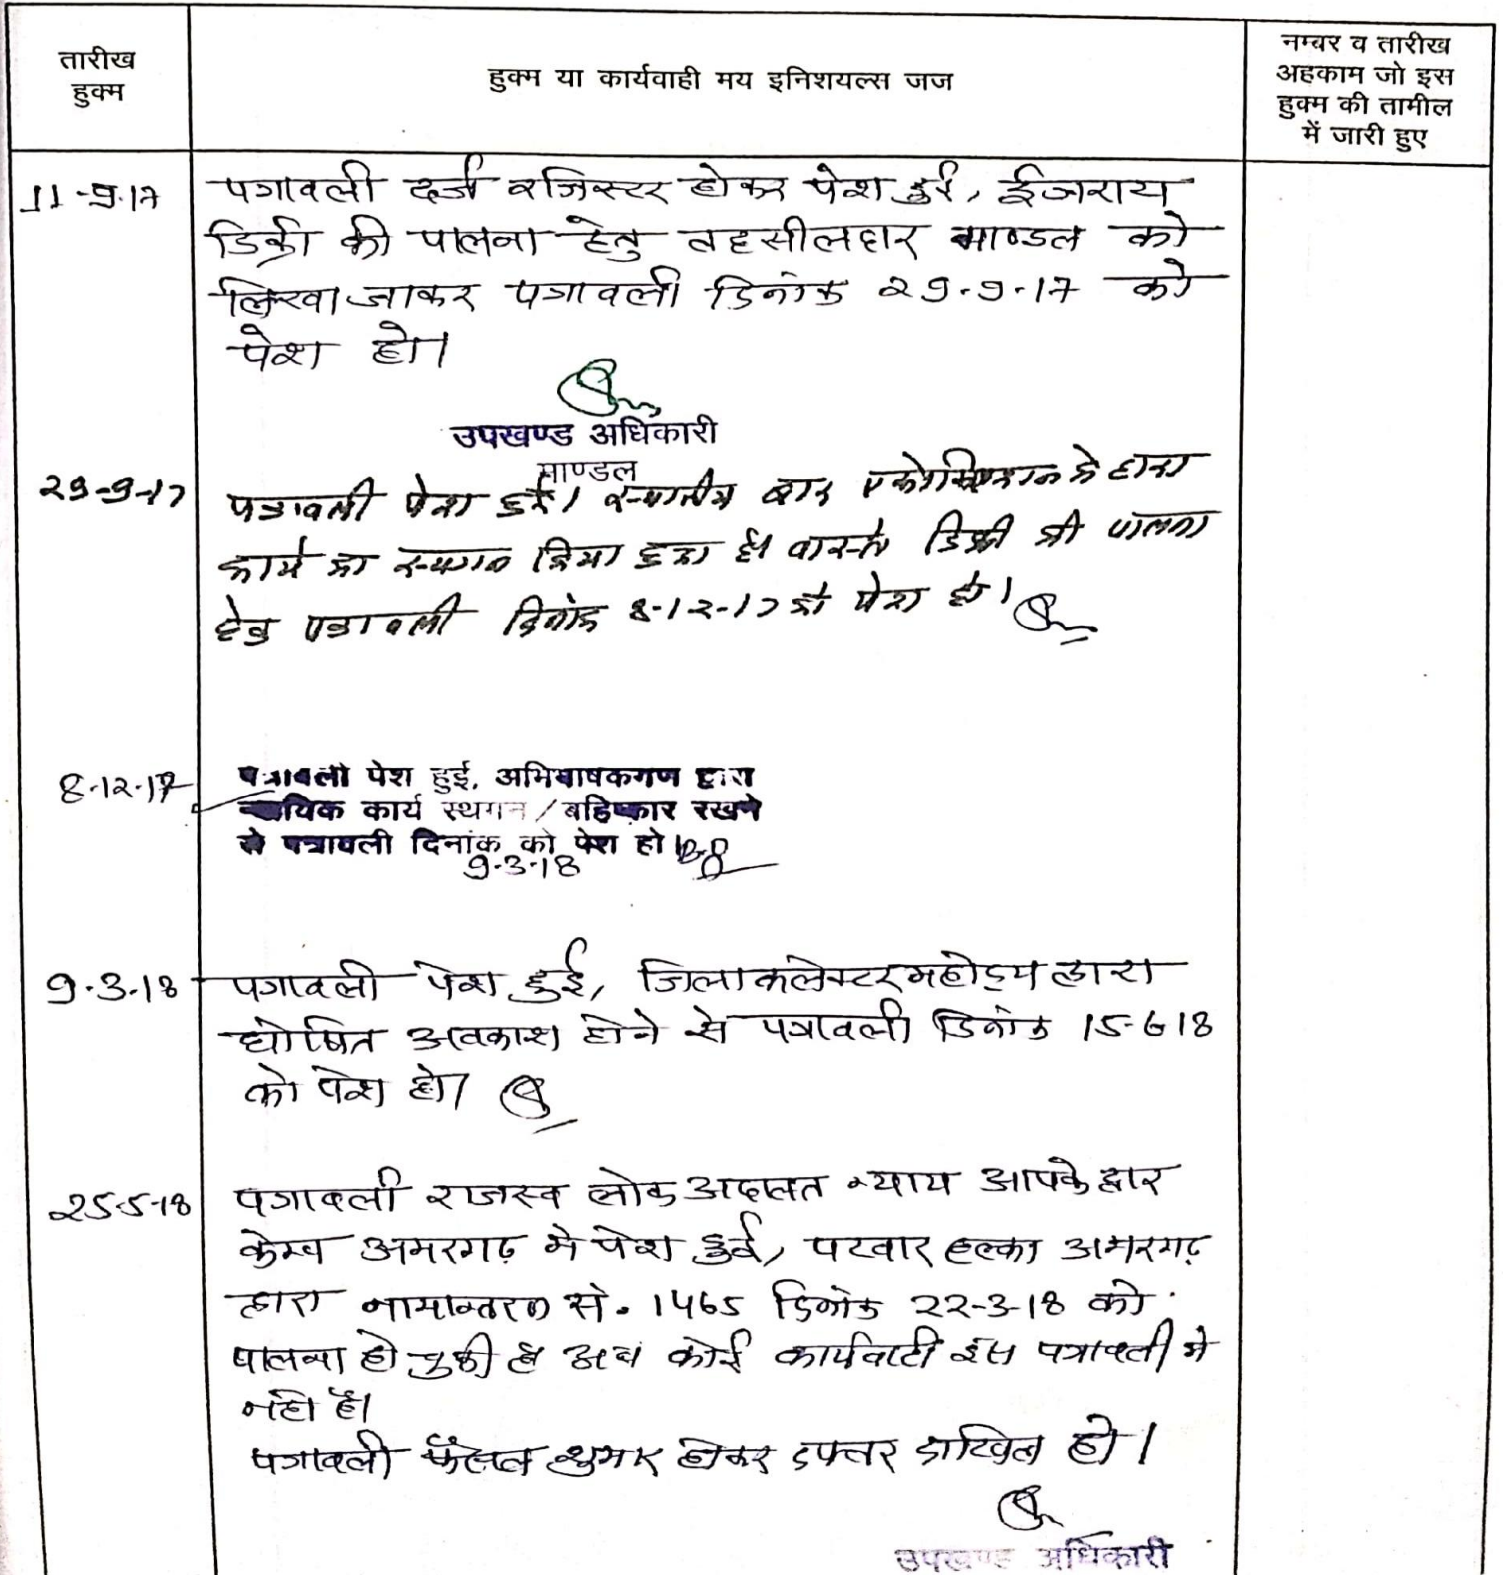 तारीख
हुक्म
हुक्म या कार्यवाही मय इनिशयल्स जज
नम्बर व तारीख
अहकाम जो इस
हुक्म की तामील
में जारी हुए
11-9-17
पत्रावली दर्ज रजिस्टर होकर पेश हुई, ईजराय
डिक्री की पालना हेतु तहसीलदार माण्डल को
लिखा जाकर पत्रावली दिनांक 29-9-17 को
पेश हो।
उपखण्ड अधिकारी
माण्डल
29-9-17
पत्रावली पेश हुई। स्थानीय बार एसोसिएशन के द्वारा
कार्य का स्थगन किया हुआ है। वास्ते डिक्री की पालना
हेतु पत्रावली दिनांक 8-12-17 को पेश हो।
8-12-17
पत्रावली पेश हुई, अभिभाषकगण द्वारा
न्यायिक कार्य स्थगन/बहिष्कार रखने
से पत्रावली दिनांक को पेश हो।
9-3-18
9-3-18
पत्रावली पेश हुई, जिला कलेक्टर महोदय द्वारा
घोषित अवकाश होने से पत्रावली दिनांक 15-6-18
को पेश हो।
25-5-18
पत्रावली राजस्व लोक अदालत न्याय आपके द्वार
केम्प अमरगढ़ मे पेश हुई, पटवार हल्का अमरगढ़
द्वारा नामान्तरण सं. 1465 दिनांक 22-3-18 को
पालना हो चुकी है अब कोई कार्यवाही इस पत्रावली मे
नही है।
पत्रावली फैसल शुमार होकर दफ्तर दाखिल हो।
उपखण्ड अधिकारी